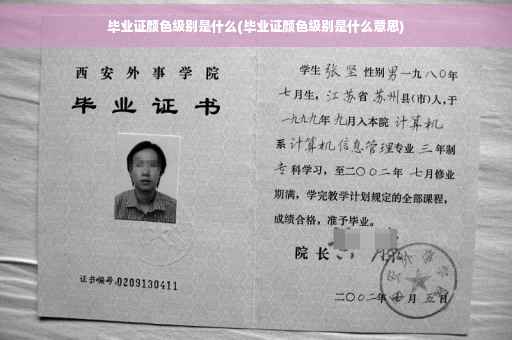 毕业证颜色级别是什么(毕业证颜色级别是什么意思)
西安外事学院
毕业证书
证书编号:0209130411
学生 张坚 性别 男 一九八〇年
七月生，江苏省 苏州县(市)人,于
一九九九年 九月入本院 计算机
系 计算机信息管理专业 三 年制
专科学习，至二〇〇二年 七月修业
期满，学完教学计划规定的全部课程，
成绩合格，准予毕业。
院长
二〇〇二年 月 五日